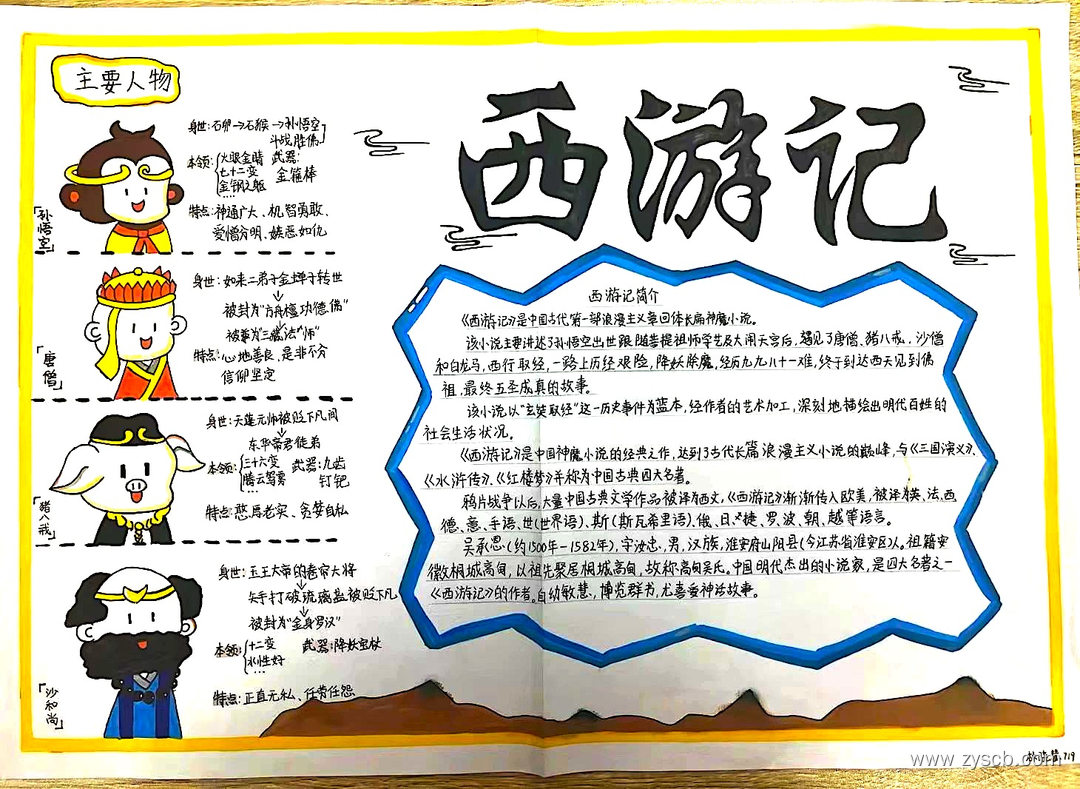 主要人物
西游记
身世:石卵→石猴→孙悟空
斗战胜佛
本领:火眼金睛 武器:
七十二变 金箍棒
金钢之躯
....
特点:神通广大、机智勇敢、
爱憎分明、嫉恶如仇
「孙悟空」
身世:如来二弟子金蝉子转世
被封为"旃檀功德佛"
被尊为"三藏法师"
特点:心地善良、是非不分
信仰坚定
「唐僧」
身世:天蓬元帅被贬下凡间
东华帝君徒弟
本领:三十六变 武器:九齿
腾云驾雾 钉钯
...
特点:憨厚老实、贪婪自私
「猪八戒」
身世:玉王大帝的卷帘大将
失手打破琉璃盏被贬下凡
被封为"金身罗汉"
本领:十二变 武器:降妖宝杖
水性好
...
特点:正直无私、任劳任怨
「沙和尚」
西游记简介
《西游记》是中国古代第一部浪漫主义章回体长篇神魔小说。
该小说主要讲述了孙悟空出世跟随菩提祖师学艺及大闹天宫后,遇见了唐僧、猪八戒、沙僧
和白龙马,西行取经,一路上历经艰险,降妖除魔,经历九九八十一难,终于到达西天见到佛
祖,最终五圣成真的故事。
该小说以"玄奘取经"这一历史事件为蓝本,经作者的艺术加工,深刻地描绘出明代百姓的
社会生活状况。
《西游记》是中国神魔小说的经典之作,达到了古代长篇浪漫主义小说的巅峰,与《三国演义》、
《水浒传》、《红楼梦》并称为中国古典四大名著。
鸦片战争以后,大量中国古典文学作品被译为西文,《西游记》渐渐传入欧美,被译为英、法、西
德、意、手语、世(世界语)、斯(斯瓦希里语)、俄、日、捷、罗、波、朝、越等语言。
吴承恩(约1500年-1582年),字汝忠,男,汉族,淮安府山阳县(今江苏省淮安区)人。祖籍安
徽桐城高甸,以祖先聚居桐城高甸,故称高甸吴氏。中国明代杰出的小说家,是四大名著之一
《西游记》的作者,自幼敏慧,博览群书,尤喜爱神话故事。
www.zyscb.com
719